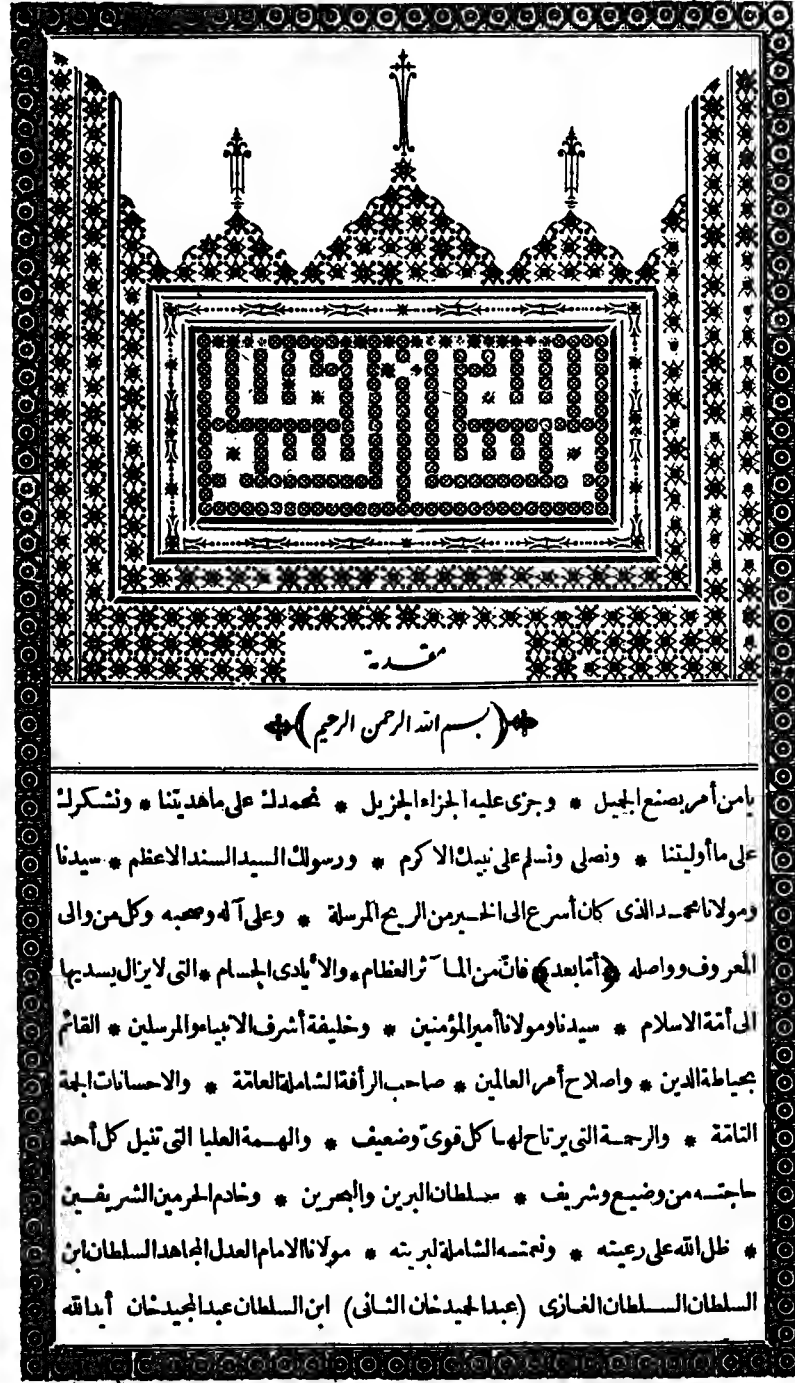 مقدمة
﴿بسم الله الرحمن الرحيم﴾
يامن أمر بصنع الجميل * وجزى عليه الجزاء الجزيل * نحمدك على ماهديتنا * ونشكرك
على ماأوليتنا * ونصلى ونسلم على نبيك الاكرم * ورسولك السيد السند الاعظم * سيدنا
ومولانا محمد الذى كان أسرع الى الخير من الريح المرسلة * وعلى آله وصحبه وكل من والى
المعروف وواصله ﴿أمّا بعد﴾ فانّ من المآثر العظام * والأيادى الجسام * التى لايزال يسديها
الى أمّة الاسلام * سيدنا ومولانا أمير المؤمنين * وخليفة أشرف الانبياء والمرسلين * القائم
بحياطة الدين * واصلاح أمر العالمين * صاحب الرأفة الشاملة العامّة * والاحسانات الجمة
التامّة * والرحمة التى يرتاح لها كل قوىّ وضعيف * والهمة العليا التى تنيل كل أحد
حاجته من وضيع وشريف * سلطان البرين والبحرين * وخادم الحرمين الشريفين
* ظل الله على رعيته * ونعمته الشاملة لبريته * مولانا الامام العدل المجاهد السلطان ابن
السلطان السلطان الغازى (عبد الحميد خان الثانى) ابن السلطان عبد المجيد خان أيد الله